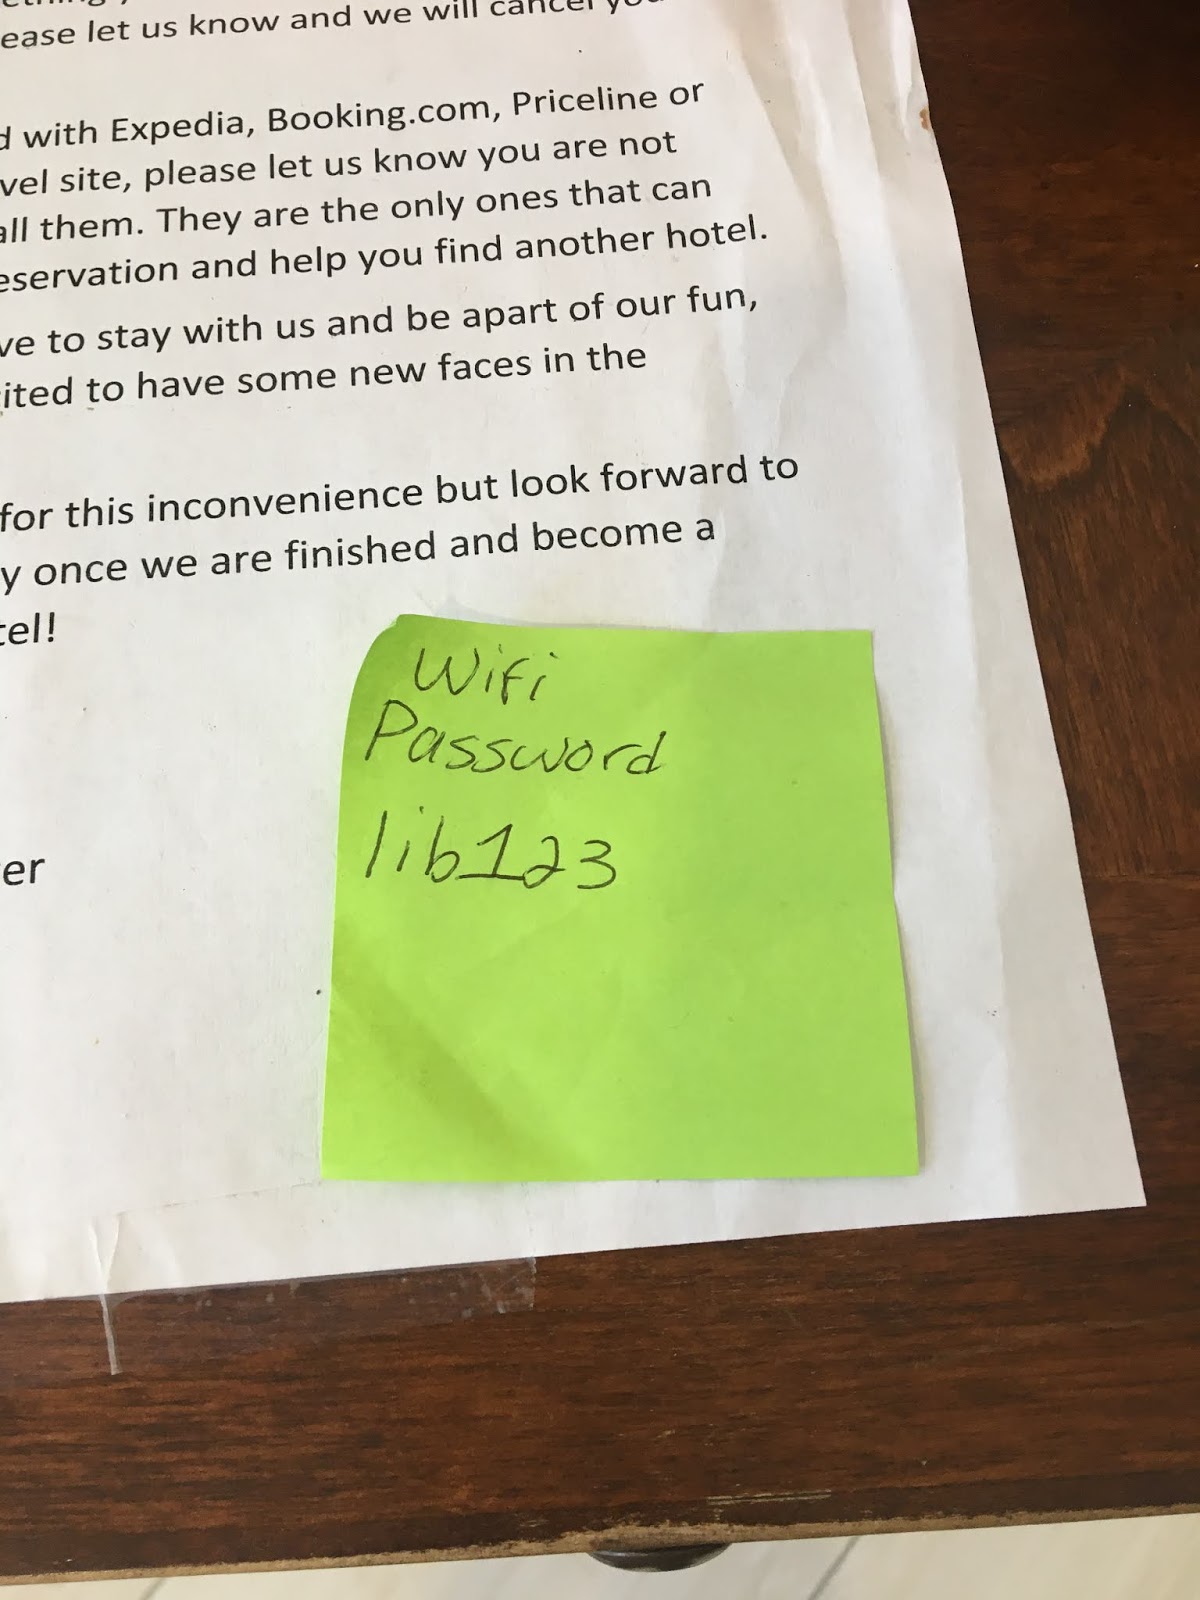 ease let us know and we will cancel
with Expedia, Booking.com, Priceline or
vel site, please let us know you are not
all them. They are the only ones that can
eservation and help you find another hotel.
ve to stay with us and be apart of our fun,
ited to have some new faces in the
for this inconvenience but look forward to
y once we are finished and become a
tel!
er
Wifi
Password
lib123